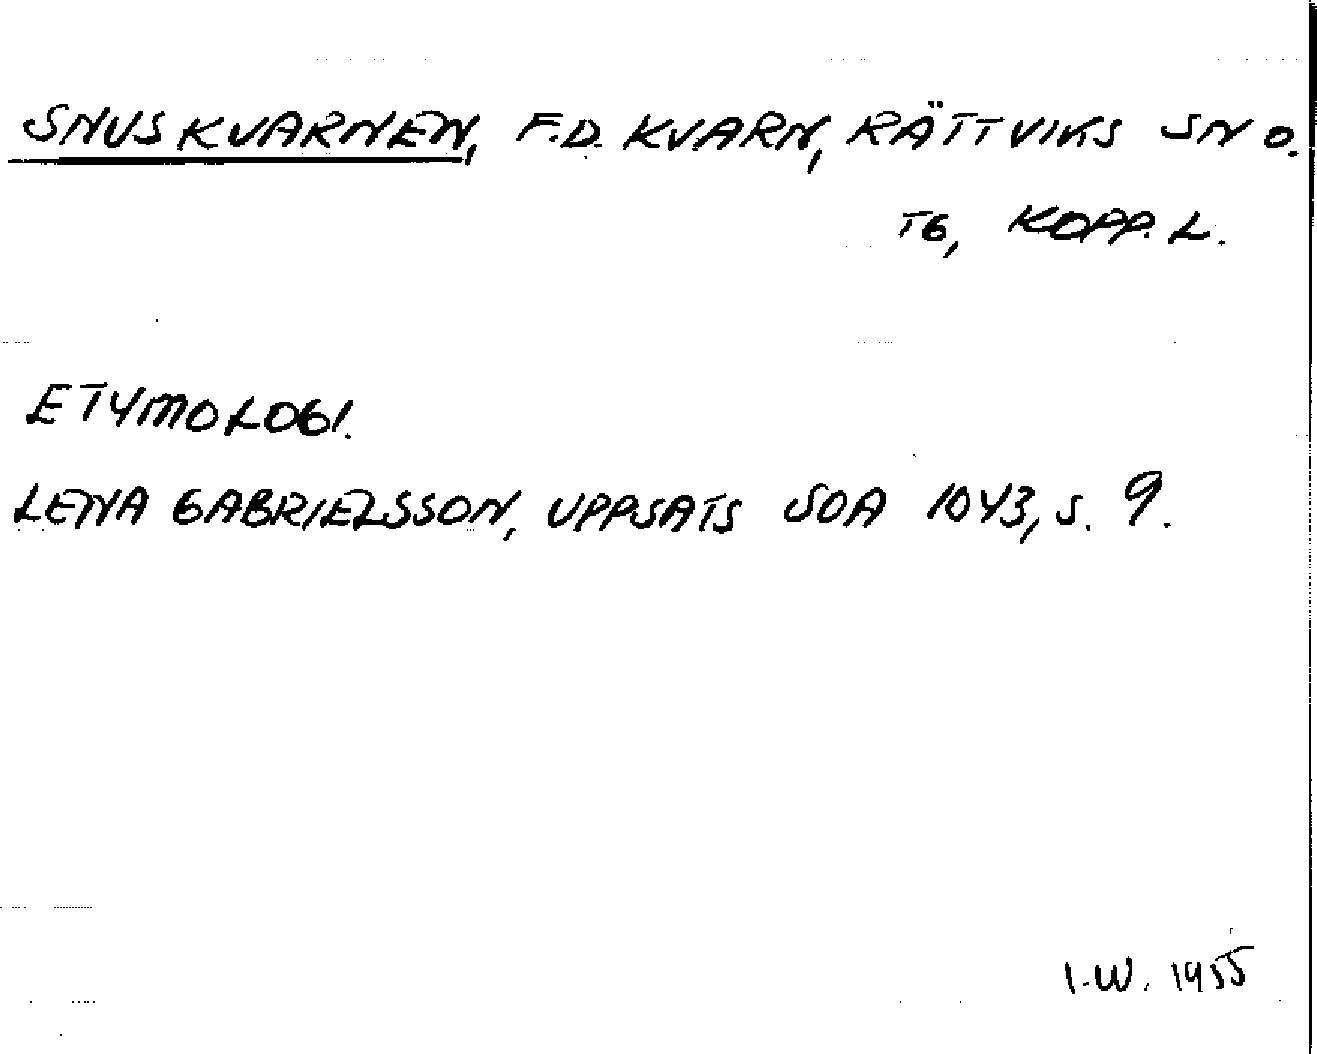 SNUSKVARNEN, F.D. KVARN, RÄTTVIKS SN O.
TG, KOPP. L.
ETYMOLOGI.
LENA GABRIELSSON, UPPSATS SOA 1043, S. 9.
I.W. 1955